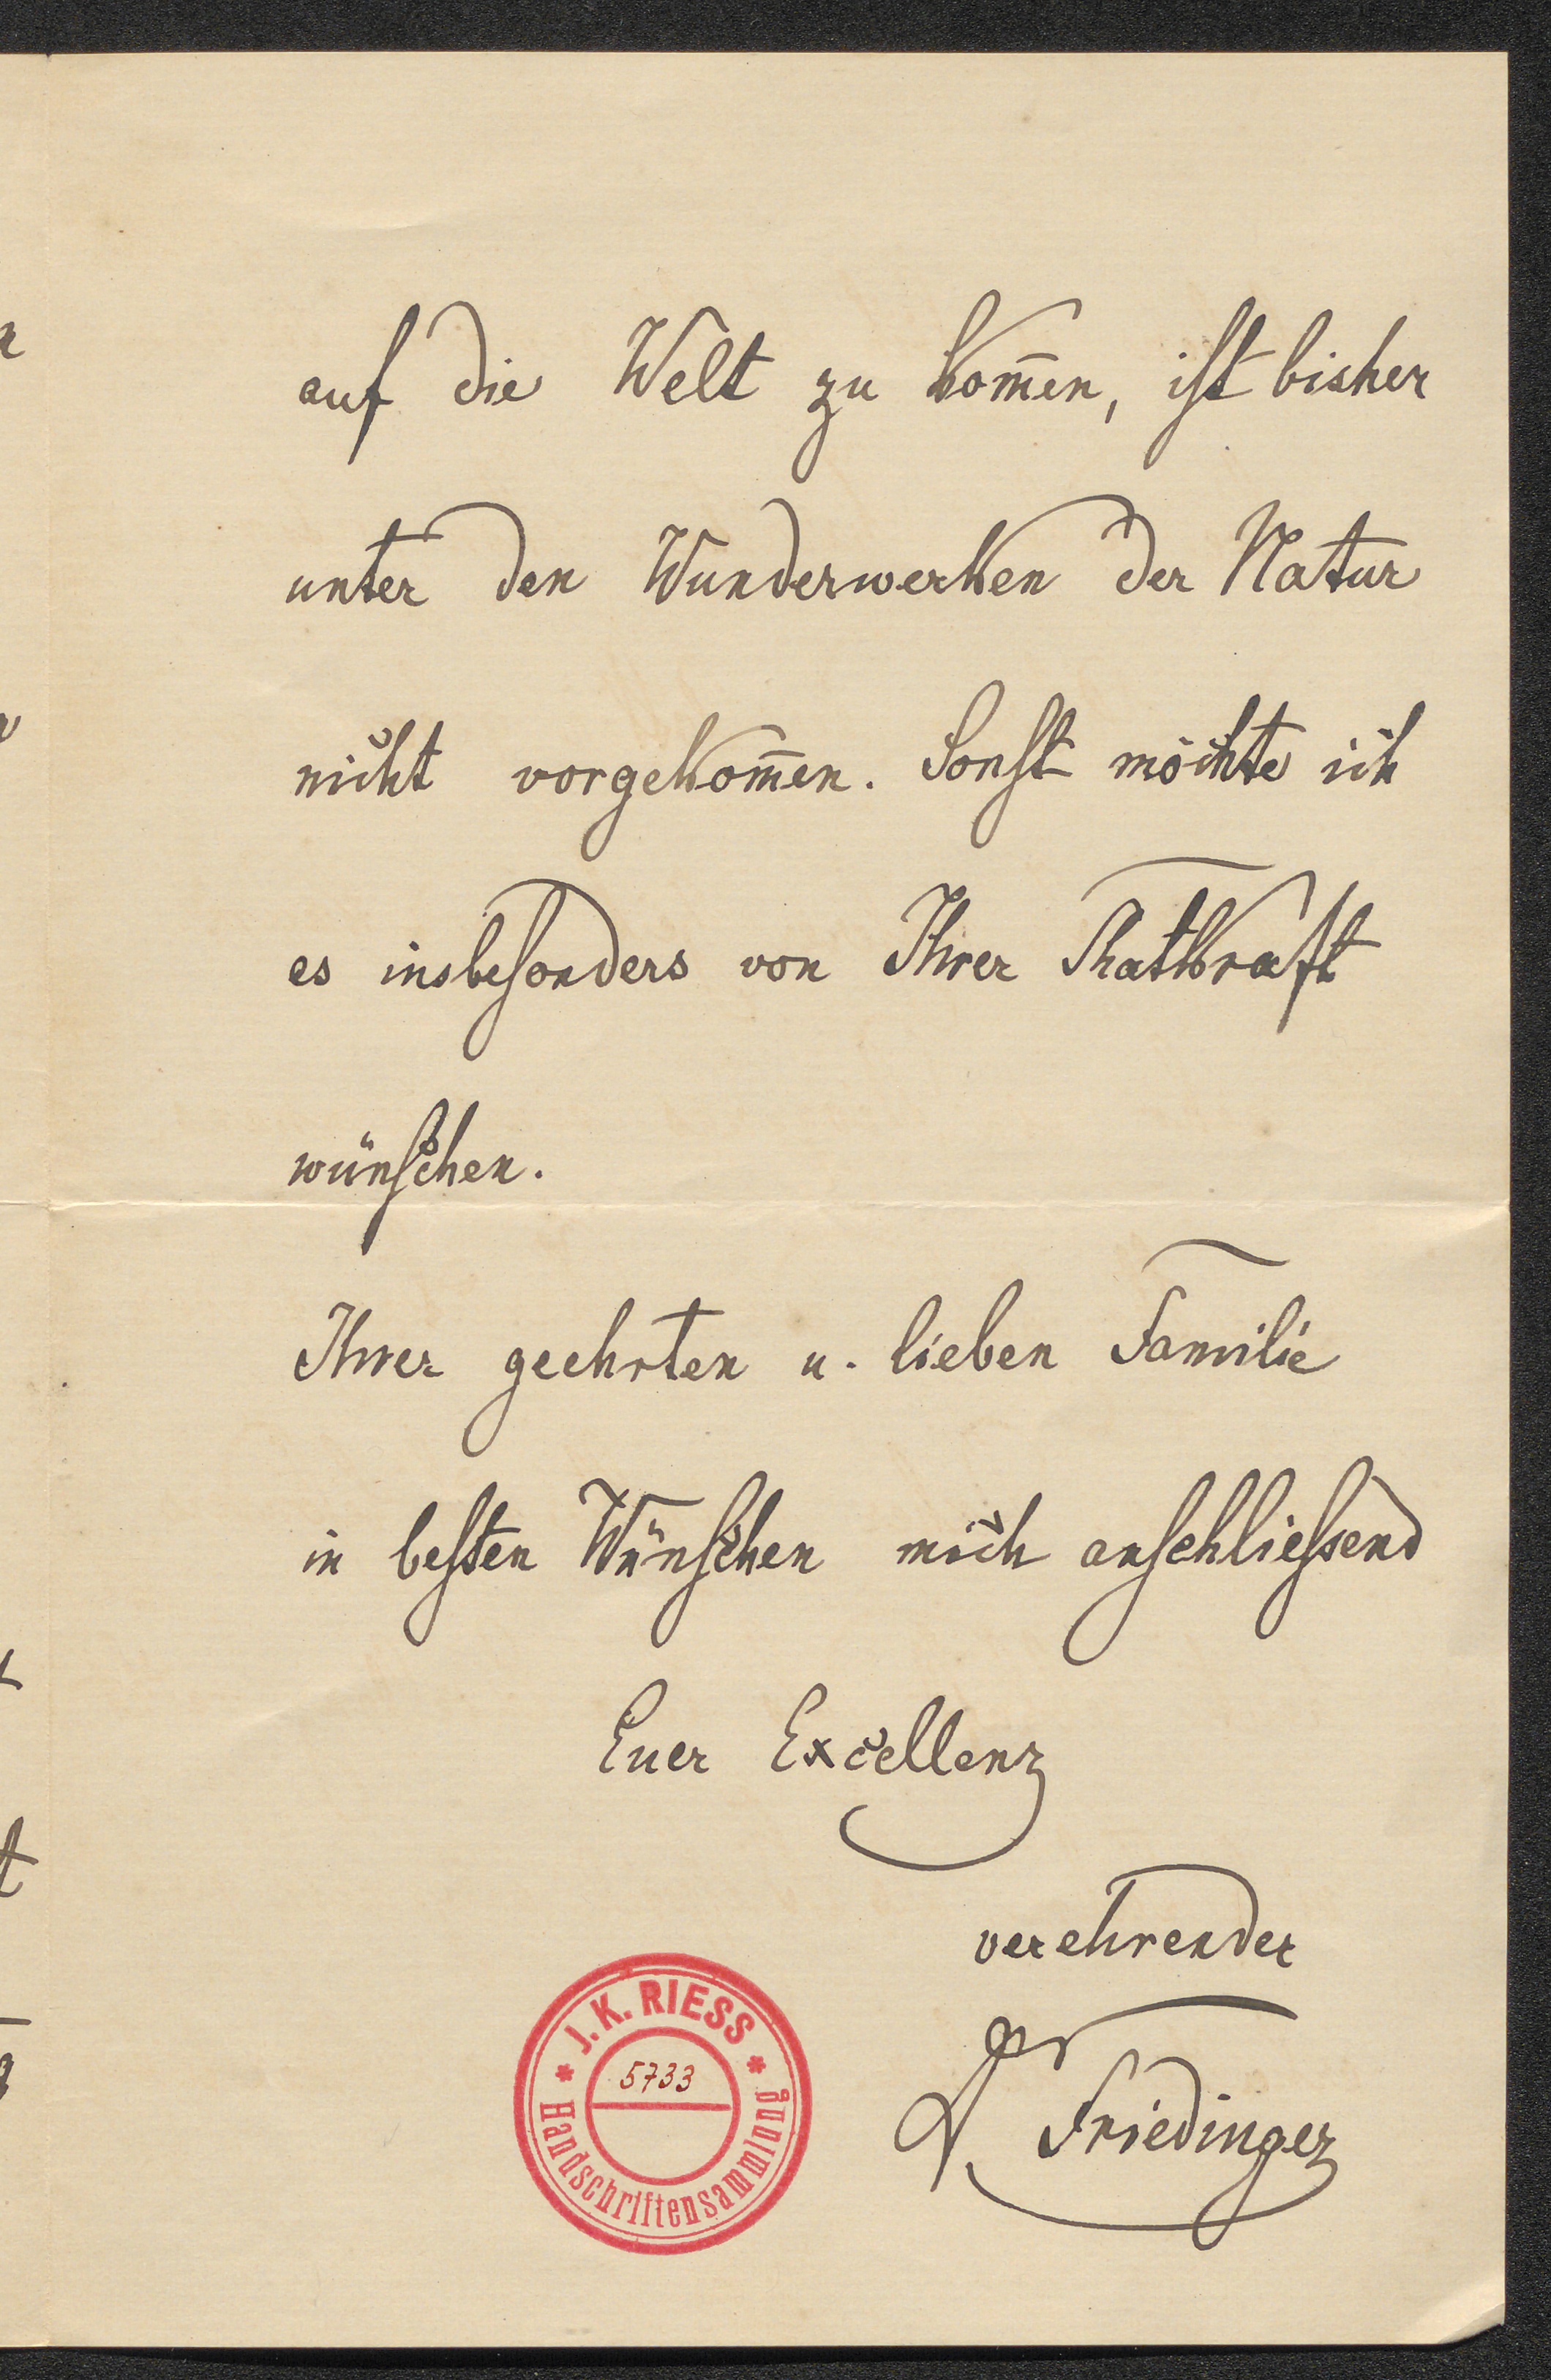 auf die Welt zu kom̄en, ist bisher
unter den Wunderwerken der Natur
nicht vorgekom̄en. Sonst möchte ich
es insbesonders von Ihrer Thatkraft
wünschen.
Ihrer geehrten u. lieben Familie
in besten Wünschen mich anschliessend
Euer Excellenz
verehrender
Dr Friedinger
* J. K. RIESS *
5733
Handschriftensammlung